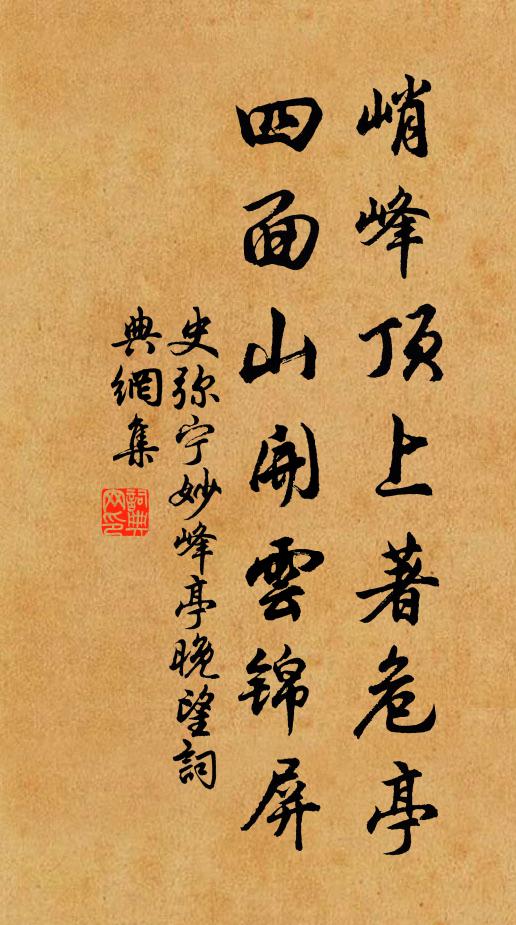 峭峰頂上著危亭
四面山開雲錦屏
史弥宁妙峰亭晚望詞
典網集
詞典網印